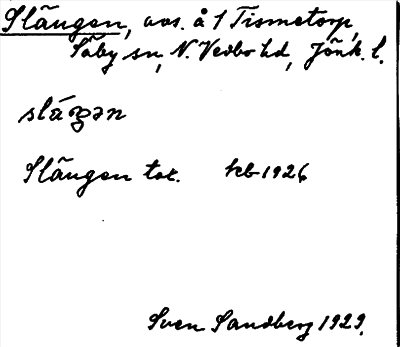 Slängen, avs. å 1 Tismetorp,
Säby sn, N. Vedbo hd, Jönk. l.
sláŋən
Slängen tor. hb 1926
Sven Sandberg 1929.